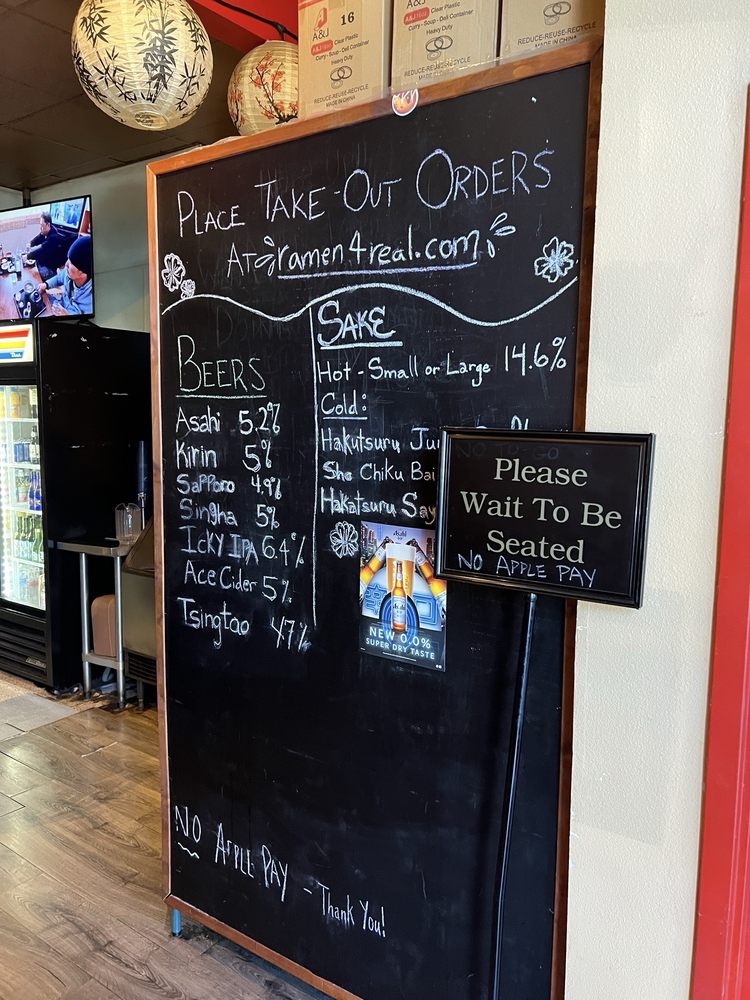 A&J
16
A&J
Clear Plastic
Curry - Soup - Deli Container
Heavy Duty
REDUCE-REUSE-RECYCLE
MADE IN CHINA
A&J
Clear Plastic
Curry - Soup - Deli Container
Heavy Duty
REDUCE-REUSE-RECYCLE
MADE IN CHINA
REDUCE-REUSE-RECYCLE
MADE IN CHINA
PLACE TAKE-OUT ORDERS
AT ramen4real.com
BEERS
Asahi 5.2%
Kirin 5%
Sapporo 4.9%
Singha 5%
Icky IPA 6.4%
Ace Cider 5%
Tsingtao 4.7%
SAKE
Hot - Small or Large 14.6%
Cold:
Hakutsuru Ju
Sho Chiku Bai
Hakatsuru Say
Asahi
NEW 0.0%
SUPER DRY TASTE
NO TO-GO
Please
Wait To Be
Seated
NO APPLE PAY
NO APPLE PAY - Thank You!